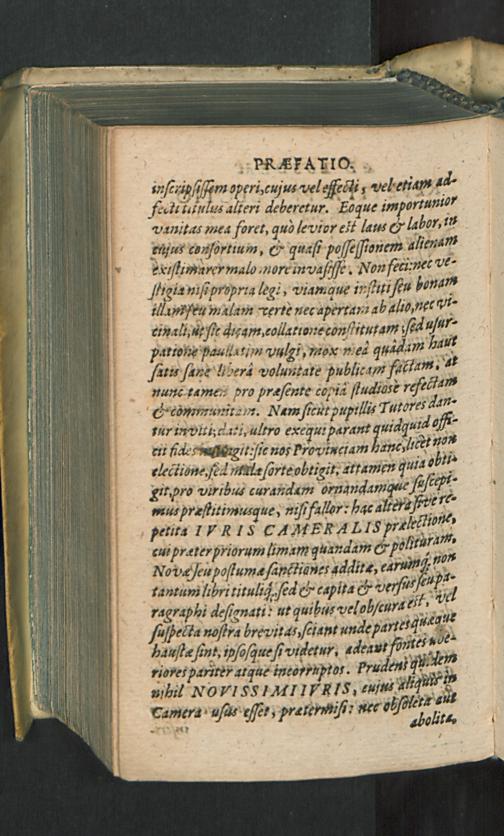 PRÆFATIO.
inscripsissem operi, cujus vel effecti, vel etiam ad-
fecti titulus alteri deberetur. Eoque importunior
vanitas mea foret, quò levior est laus & labor, in
cujus consortium, & quasi possessionem alienam
existimarer malo more invasisse. Non feci: nec ve-
stigia nisi propria legi, viamque institi seu bonam
illam seu malam certè nec apertam ab alio, nec vi-
cinali, ut sic dicam, collatione constitutam, sed usur-
patione paullatim vulgi, mox meâ quâdam haut
satis sane liberâ voluntate publicam factam, at
nunc tamen pro præsente copiâ studiosè refectam
& communitam. Nam sicut pupillis Tutores dan-
tur inviti; dati, ultro exequi parant quidquid offi-
cii fides exigit: sic nos Provinciam hanc, licet non
electione, sed mala sorte obtigit, attamen quia obti-
git, pro viribus curandam ornandamque suscepi-
mus præstitimusque, nisi fallor: hac altera seve re-
petita IVRIS CAMERALIS prælectione,
cui præter priorum limam quandam & polituram,
Novæ seu postumæ sanctiones additæ, earumq; non
tantum libri tituliq; sed & capita & versus seu pa-
ragraphi designati: ut quibus vel obscura est, vel
suspecta nostra brevitas, sciant unde partes quæque
haustæ sint, ipsosque si videtur, adeant fontes ube-
riores pariter atque incorruptos. Prudens quidem
nihil NOVISSIMI IVRIS, cujus aliquis in
Camera usus esset, prætermisi: nec obsoleta aut
abolita,